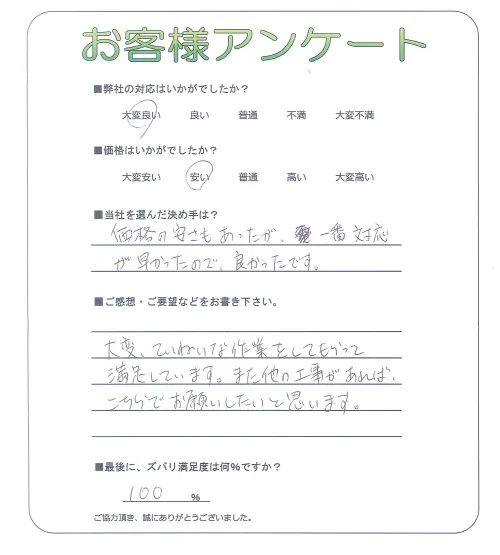 お客様アンケート
■弊社の対応はいかがでしたか?
大変良い 良い 普通 不満 大変不満
■価格はいかがでしたか?
大変安い 安い 普通 高い 大変高い
■当社を選んだ決め手は?
価格の安さもあったが、一番対応
が早かったので、良かったです。
■ご感想・ご要望などをお書き下さい。
大変、ていねいな作業をしてもらって
満足しています。また他の工事があれば、
こちらでお願いしたいと思います。
■最後に、ズバリ満足度は何%ですか?
100 %
ご協力頂き、誠にありがとうございました。